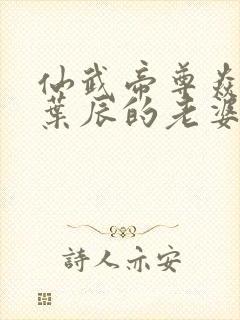 仙武帝尊葉
葉辰的老婆
詩人亦安